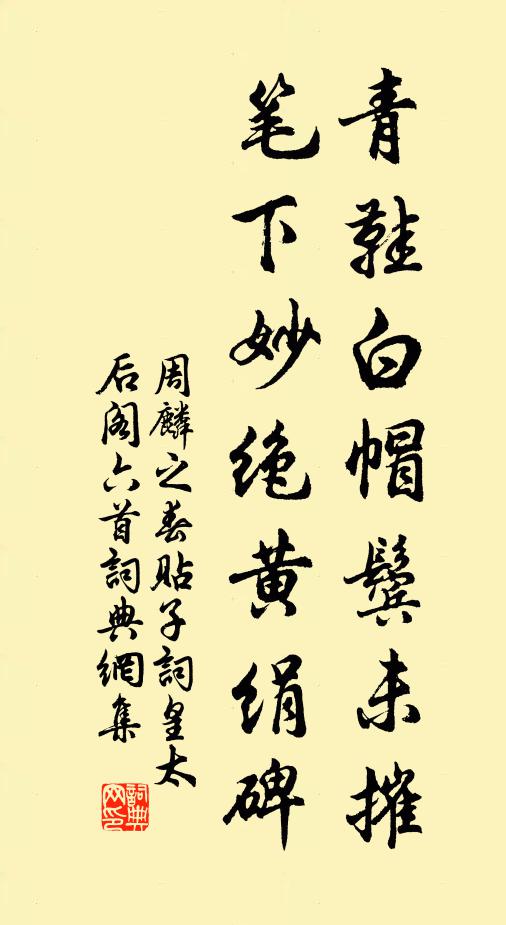 青鞋白帽鬓未摧
笔下妙绝黄绢碑
周麟之春贴子詞皇太
后阁六首詞典網集
詞典網印